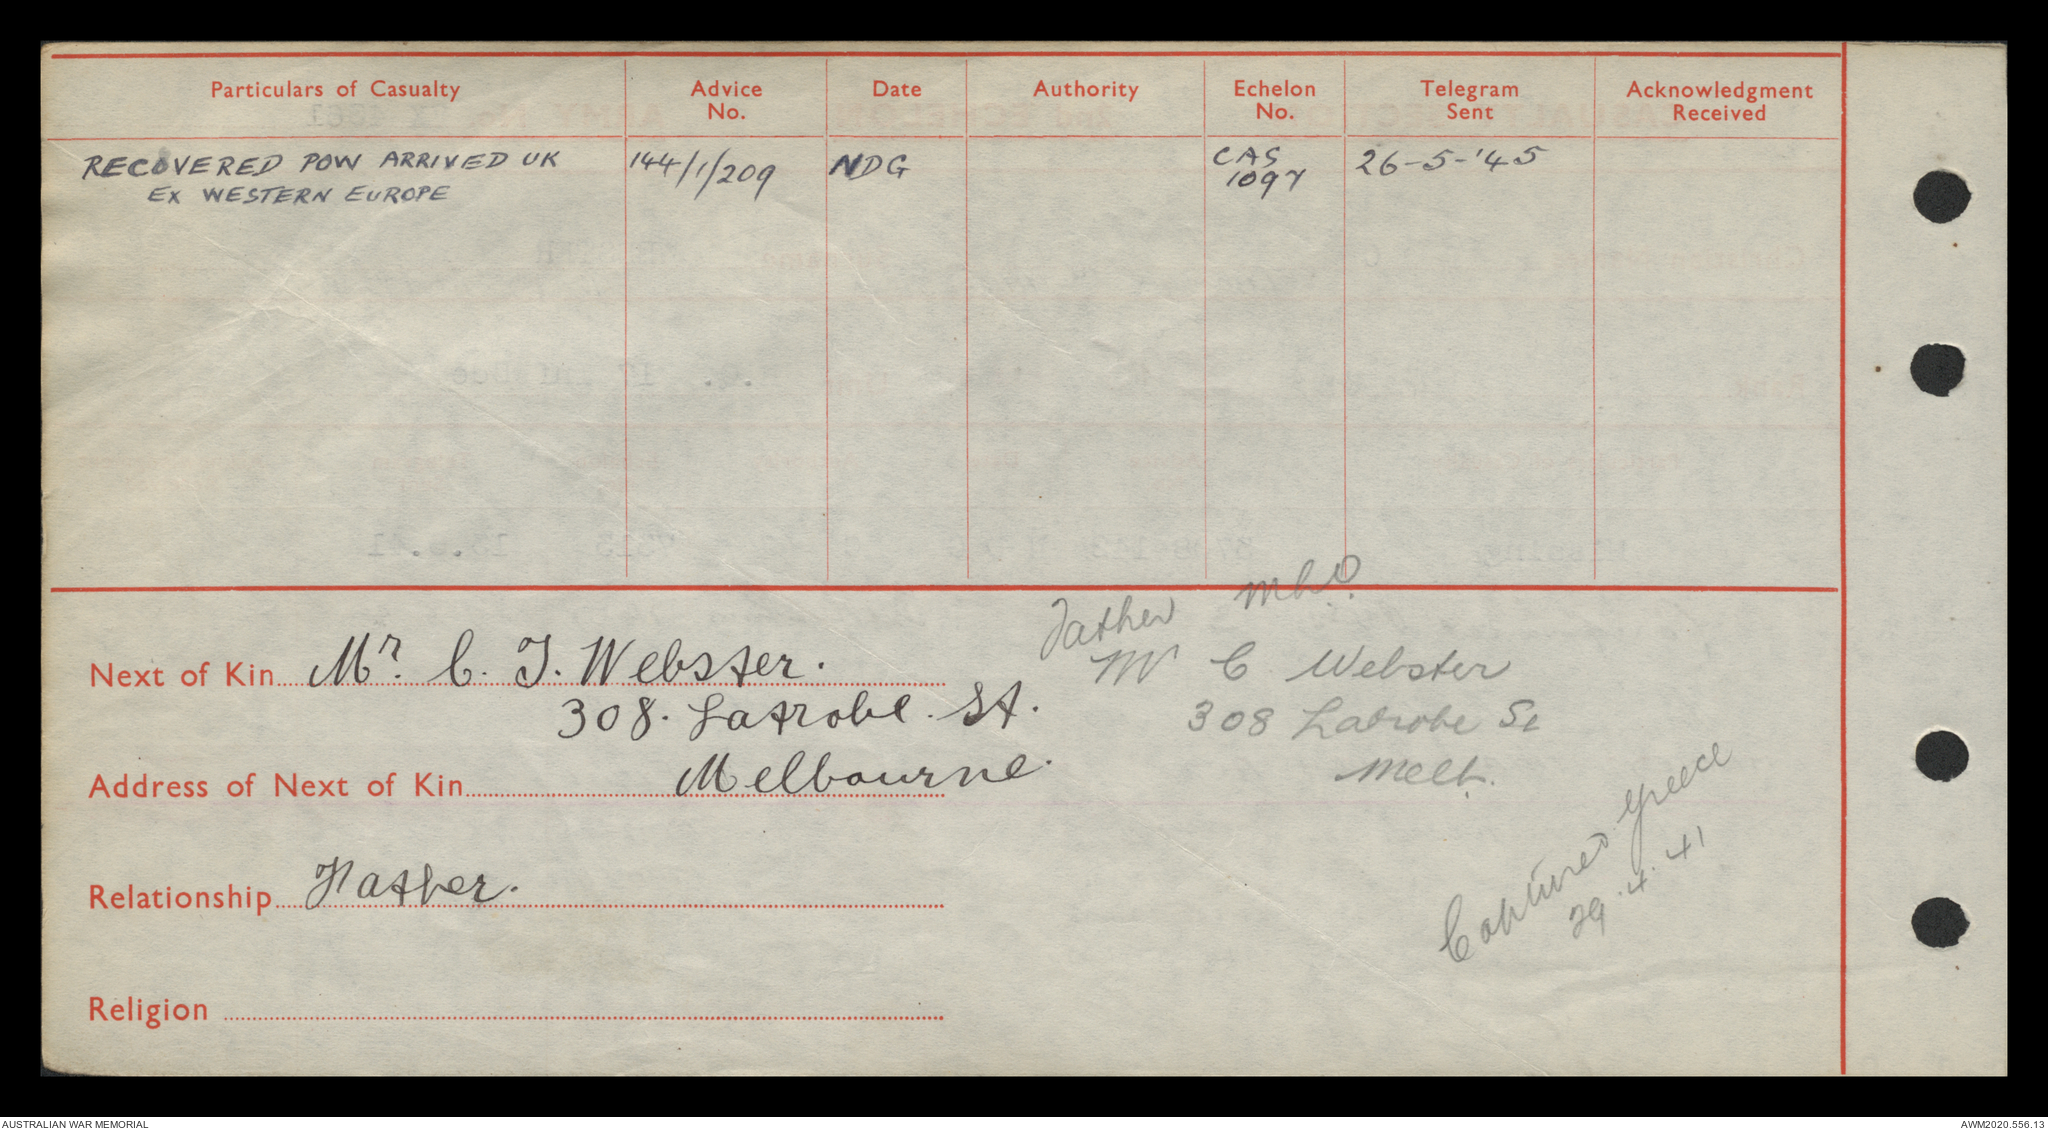 Particulars of Casualty
Advice No.
Date
Authority
Echelon No.
Telegram Sent
Acknowledgment Received
RECOVERED POW ARRIVED UK
EX WESTERN EUROPE
144/1/209
NDG
CAS
1097
26-5-'45
Father
Mr C Webster
308 Latrobe St
Melb.
Next of Kin Mr. C. J. Webster.
308. Latrobe. St.
Address of Next of Kin Melbourne.
Captured Greece
29.4.41
Relationship Father.
Religion
AUSTRALIAN WAR MEMORIAL
AWM2020.556.13